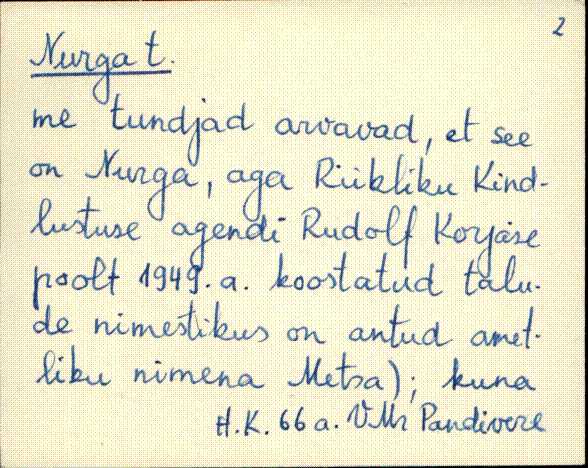 2
Nurga t.
me tundjad arvavad, et see
on Nurga, aga Riikliku Kind-
lustuse agendi Rudolf Korjase
poolt 1949. a. koostatud talu-
de nimestikus on antud amet-
liku nimena Metsa); kuna
H.K. 66 a. VMr Pandivere